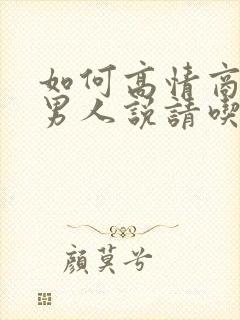 如何高情商
男人説請喫
顔莫兮